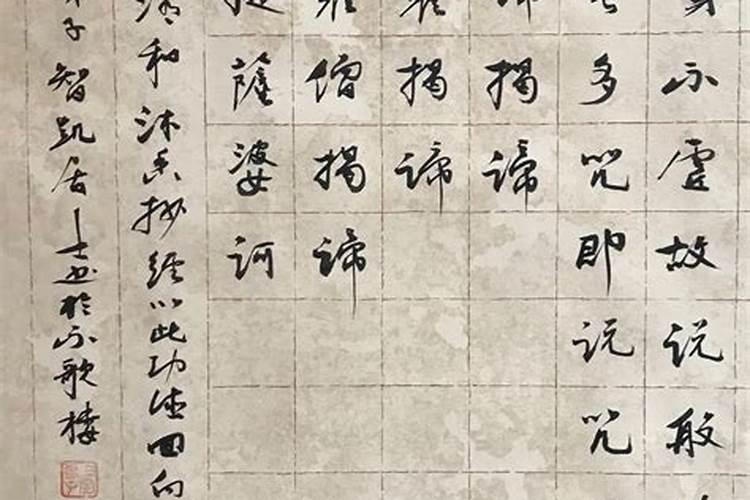 不虛故說般
多咒即說咒
揭諦
揭諦
僧揭諦
薩婆訶
和沐香抄經以此功德回向
子智凱居士書於不歌樓